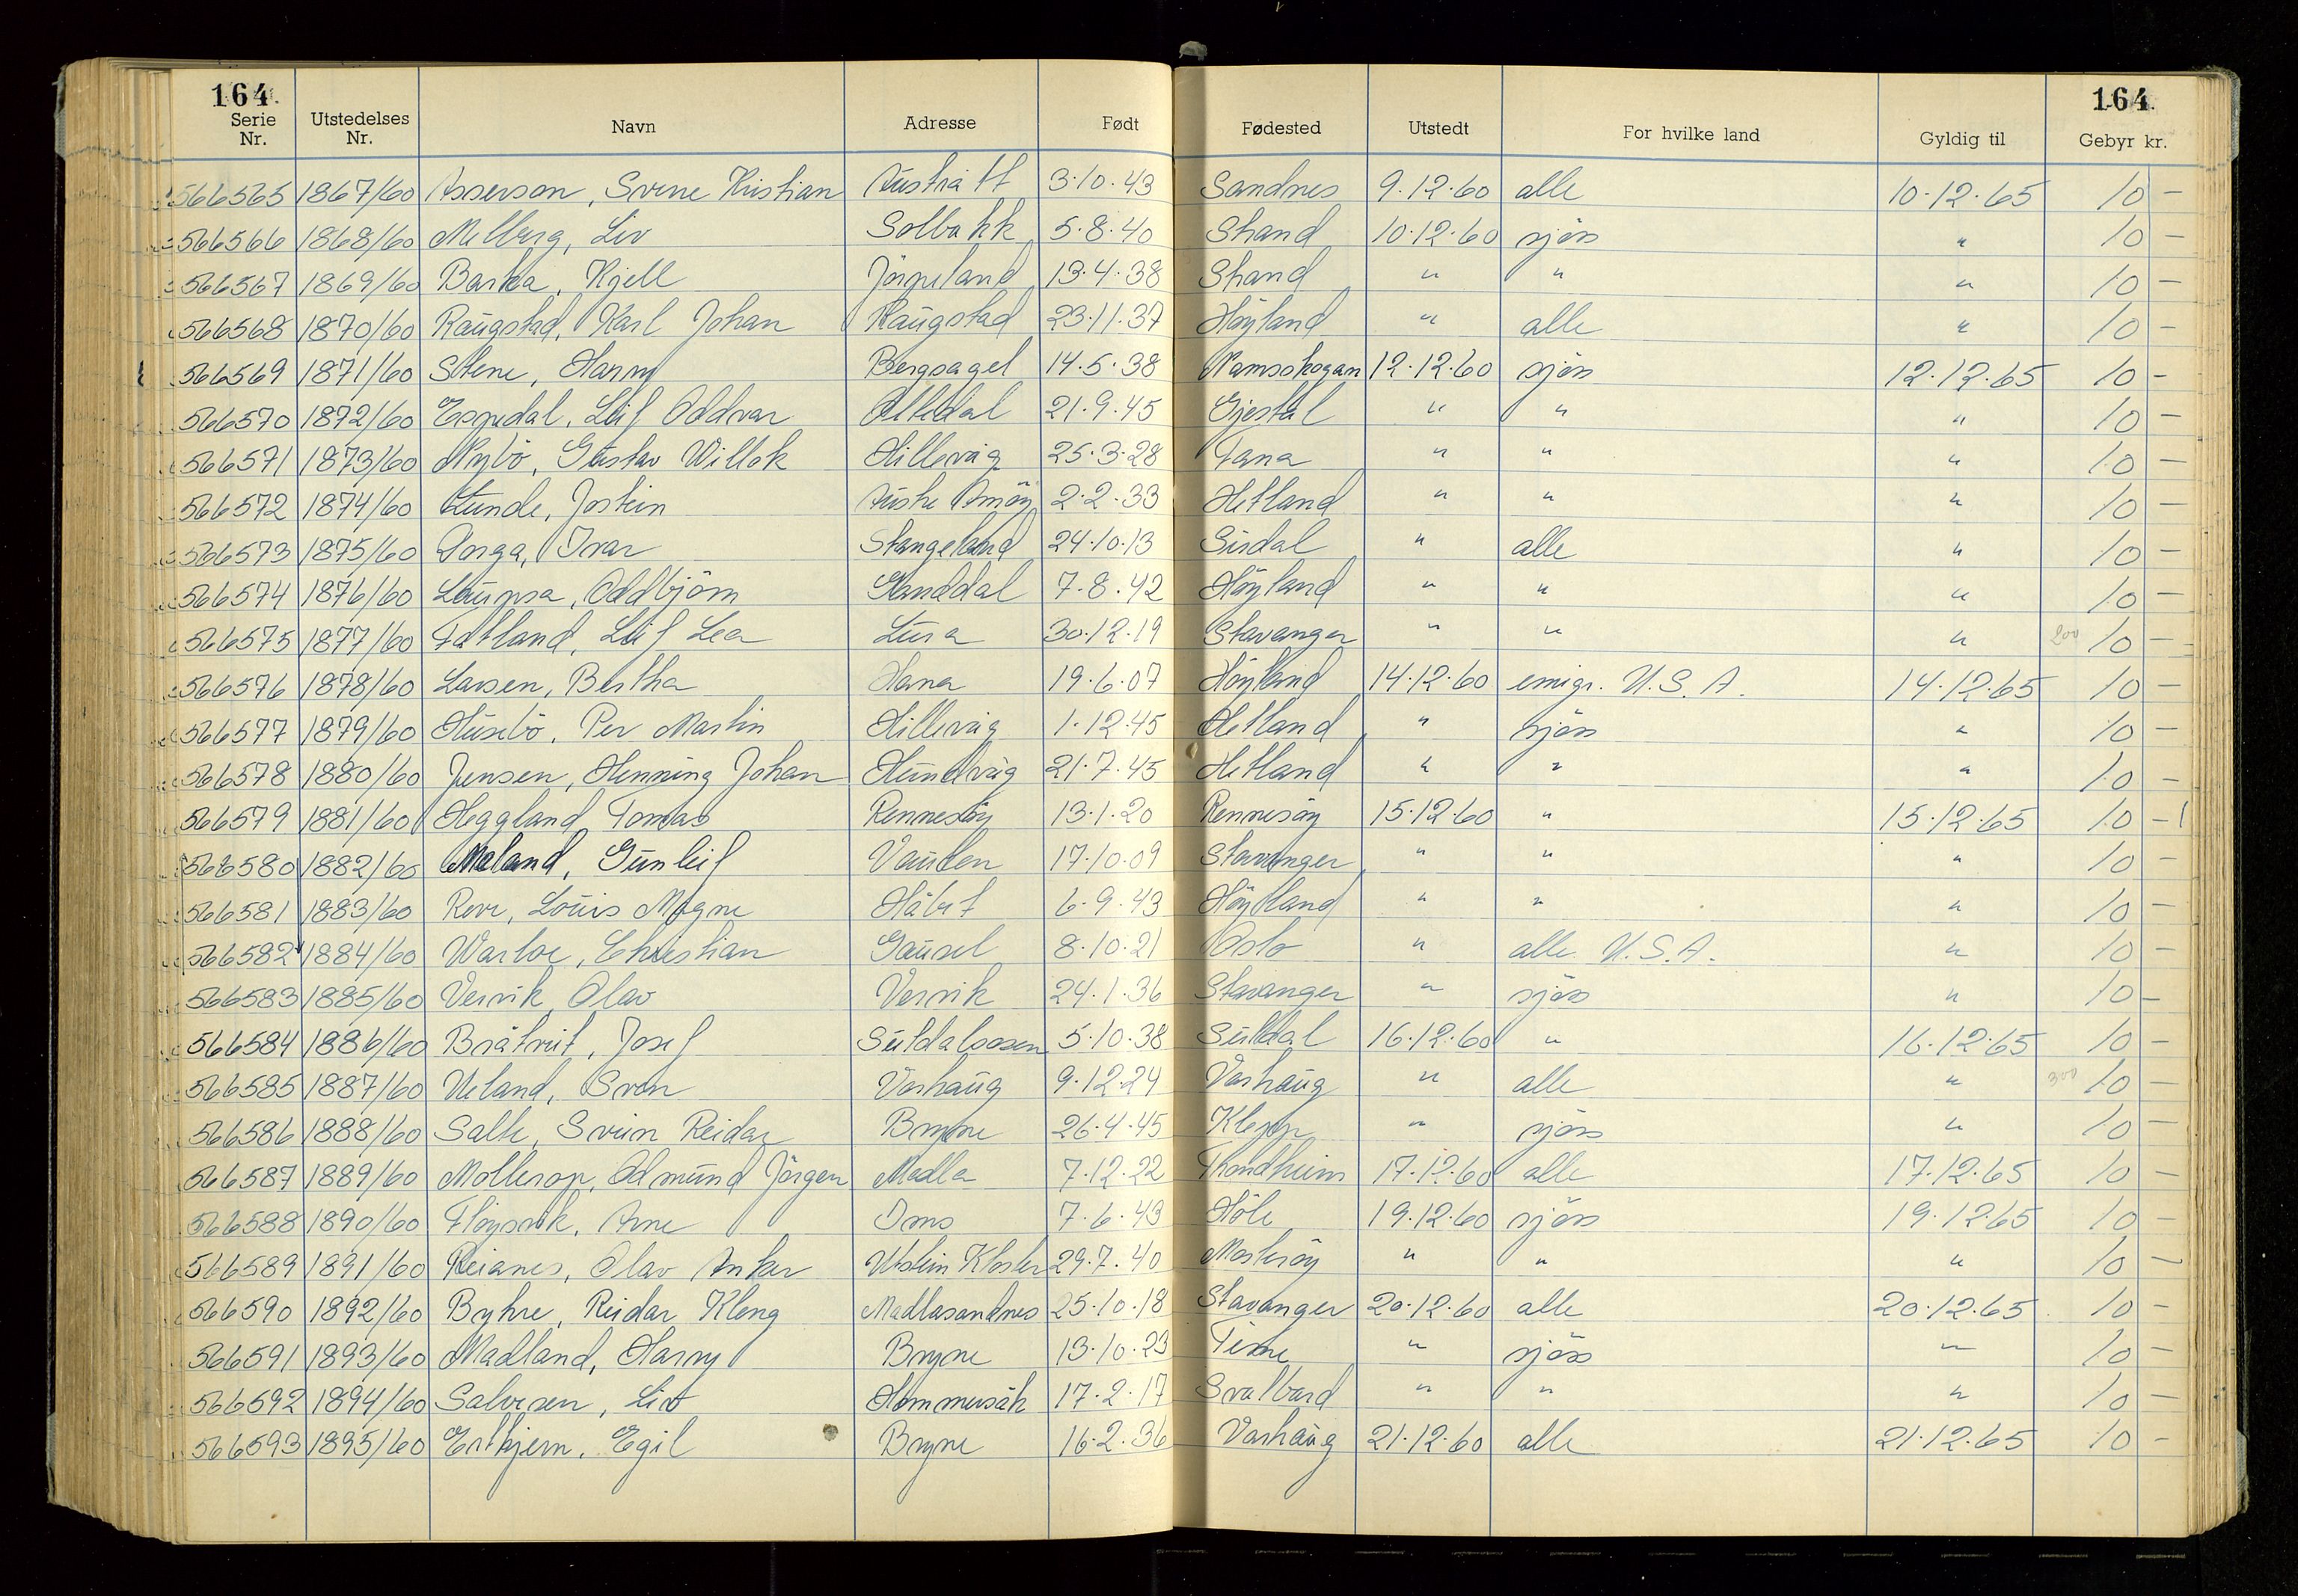 164. 164.
Serie Nr. Utstedelses Nr. Navn Adresse Født Fødested Utstedt For hvilke land Gyldig til Gebyr kr.
566565 1867/60 Asserson, Svene Kristian Austrått 3.10.43 Sandnes 9.12.60 alle 10.12.65 10 –
566566 1868/60 Melberg, Liv Solbakk 5.8.40 Strand 10.12.60 sjöss " 10 –
566567 1869/60 Barka, Kjell Jörpeland 13.4.38 Strand " " " 10 –
566568 1870/60 Raugstad, Karl Johan Raugstad 23.11.37 Höyland " alle " 10 –
566569 1871/60 Stene, Harry Bergsagel 14.5.38 Namsskogan 12.12.60 sjöss 12.12.65 10 –
566570 1872/60 Espedal, Leif Oddvar Oltedal 21.9.45 Gjestal " " " 10 –
566571 1873/60 Nybö, Gustav Willok Hillevåg 25.3.28 Fana " " " 10 –
566572 1874/60 Lunde, Jostein Austre Åmöy 2.2.33 Hetland " " " 10 –
566573 1875/60 Dorga, Ivar Stangeland 24.10.13 Sirdal " alle " 10 –
566574 1876/60 Laupsa, Oddbjörn Ganddal 7.8.42 Höyland " " " 10 –
566575 1877/60 Fatland, Leif Lea Lura 30.12.19 Stavanger " " " 200 10 –
566576 1878/60 Larsen, Bertha Hana 19.6.07 Höyland 14.12.60 emigr. U.S.A. 14.12.65 10 –
566577 1879/60 Husebö, Per Martin Hillevåg 1.12.45 Hetland " sjöss " 10 –
566578 1880/60 Jensen, Henning Johan Hundvåg 21.7.45 Hetland " " " 10 –
566579 1881/60 Heggland, Tomas Rennesöy 13.1.20 Rennesöy 15.12.60 " 15.12.65 10 –
566580 1882/60 Meland, Gunleif Vaulen 17.10.09 Stavanger " " " 10 –
566581 1883/60 Reve, Louis Magne Håbet 6.9.43 Höyland " " " 10 –
566582 1884/60 Warloe, Christian Gausel 8.10.21 Oslo " alle U.S.A. " 10 –
566583 1885/60 Vervik, Olav Vervik 24.1.36 Stavanger " sjöss " 10 –
566584 1886/60 Bråtveit, Josef Suldalsosen 5.10.38 Suldal 16.12.60 " 16.12.65 10 –
566585 1887/60 Ueland, Sven Varhaug 9.12.24 Varhaug " alle " 300 10 –
566586 1888/60 Salte, Svein Reidar Bryne 26.4.45 Klepp " sjöss " 10 –
566587 1889/60 Mollerop, Odmund Jörgen Madla 7.12.22 Trondheim 17.12.60 alle 17.12.65 10 –
566588 1890/60 Flöysvik, Arne Ims 7.6.43 Höle 19.12.60 sjöss 19.12.65 10 –
566589 1891/60 Reianes, Olav Anker Utstein Kloster 29.7.40 Mosteröy " " " 10 –
566590 1892/60 Byhre, Reidar Kleng Madlasandnes 25.10.18 Stavanger 20.12.60 alle 20.12.65 10 –
566591 1893/60 Madland, Harry Bryne 13.10.23 Time " sjöss " 10 –
566592 1894/60 Salvesen, Liv Hommersåk 17.2.17 Svalbard " " " 10 –
566593 1895/60 Ertkjern, Egil Bryne 16.2.36 Varhaug 21.12.60 alle 21.12.65 10 –